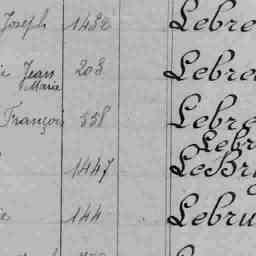 Joseph 1432 Lebre
Jean Marie 203 Lebre
François 358 Lebre
Lebr
1447 LeBr
144 Lebru